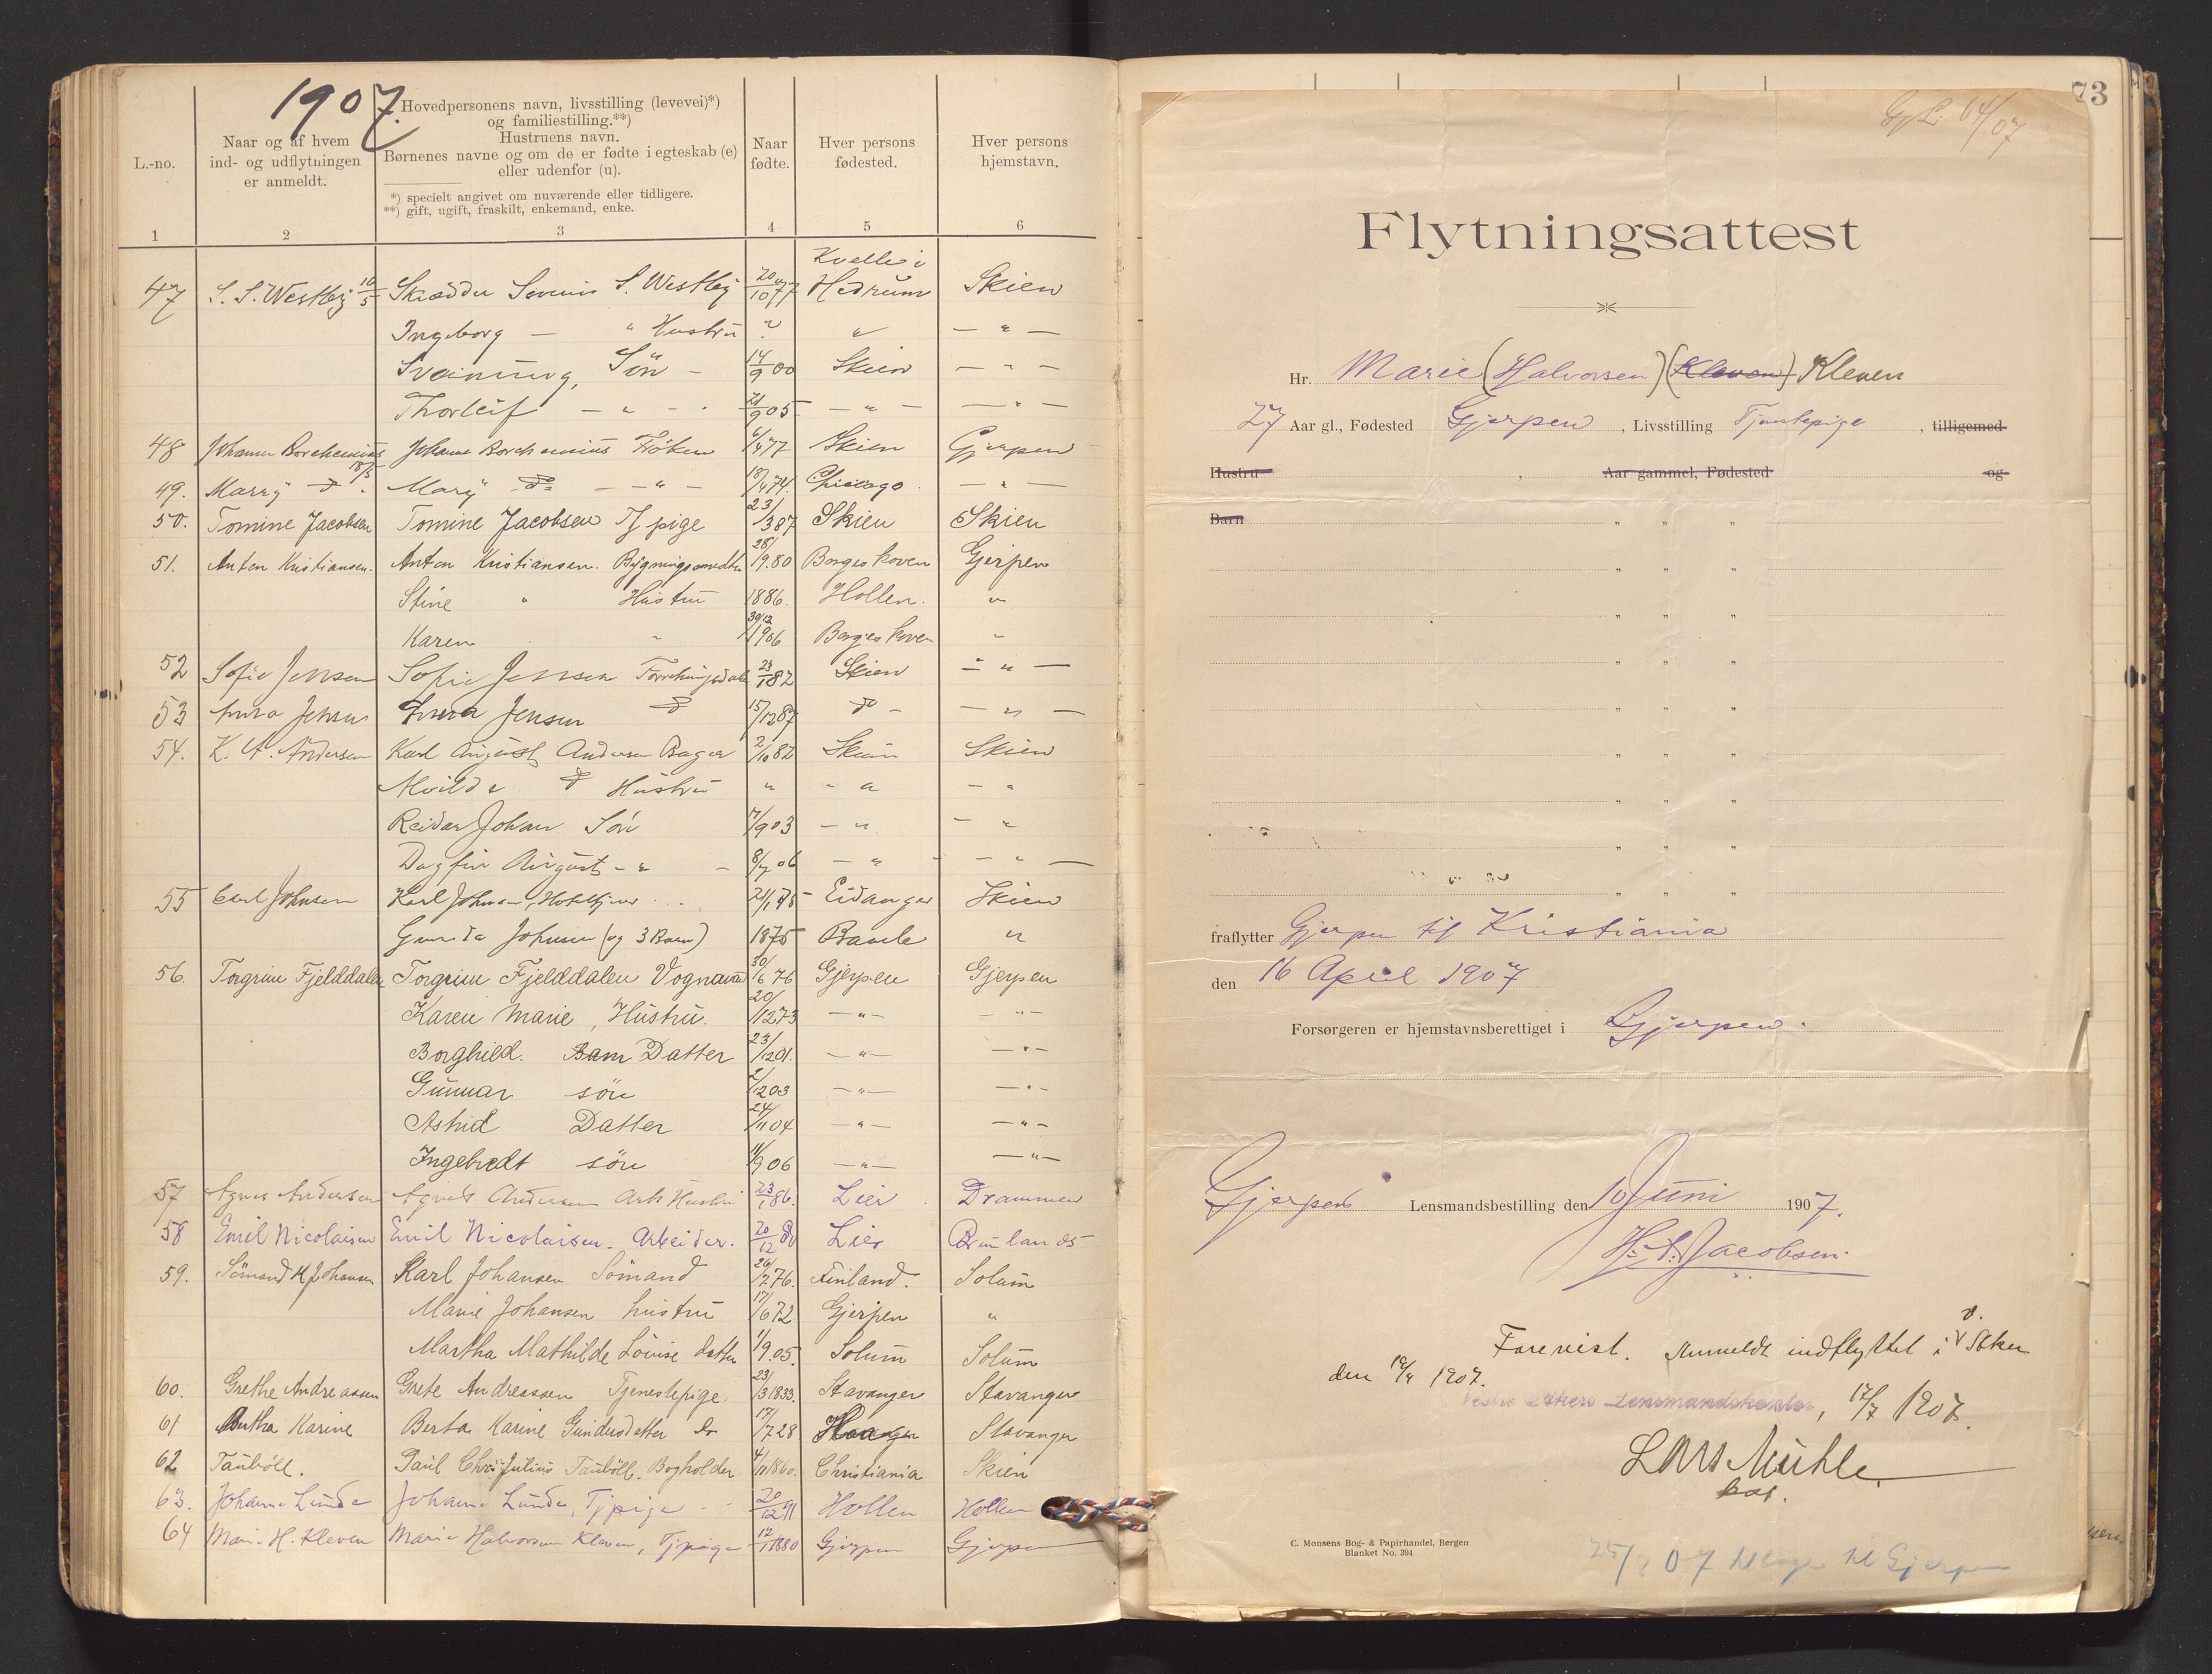 1907.
L.-no.
Naar og af hvem
ind- og udflytningen
er anmeldt.
Hovedpersonens navn, livsstilling (levevei)*)
og familiestilling.**)
Hustruens navn.
Børnenes navne og om de er fødte i egteskab (e)
eller udenfor (u).
*) specielt angivet om nuværende eller tidligere.
**) gift, ugift, fraskilt, enkemand, enke.
Naar
fødte.
Hver persons
fødested.
Hver persons
hjemstavn.
1 2 3 4 5 6
47 S. S. Westby 16/5 Skrædder Severin S. Westby 20/10 77 Kvelle i Hedrum Skien
Ingeborg — " Hustru " " — " —
Sveinung, Sön — 14/9 00 Skien — " —
Thorleif — " — 21/9 05 — " — — " —
48 Johanne Borchenius 18/5 Johanne Borchenius Fröken 6/4 77 Skien Gjerpen
49. Mary do Mary do — " — 18/4 74. Chicago — " —
50. Tomine Jacobsen Tomine Jacobsen Tj pige 23/3 87 Skien Skien
51. Anton Kristiansen. Anton Kristiansen. Bygningssnedker 28/9.80 Borgeskoven Gjerpen
Stine " Hustru 1886. Hollen. "
Karen " 30/12 1906 Borgeskoven "
52 Sofie Jensen Sofie Jensen 23/1 82 Skien — " —
53 Anna Jensen Anna Jensen do 15/12 87 do — — " —
54. K. A. Andersen Karl August Andersen Bager 2/10 82 Skien Skien
Alvilde do Hustru " - " — "
Reidar Johan Sön 7/9 03 — " — "
Dagfin August - " — 8/7 06 — " — — " —
55 Carl Johnsen Karl Johnsen, Eidanger Skien
Gunda Johnsen (og 3 Barn) 1875 Bamle "
56. Torgrim Fjelddalen Torgrim Fjelddalen Vognmand 30/6 76 Gjerpen Gjerpen
Karen Marie, Hustru. 20/12 73 — " — — " —
Borghild. Barn Datter 23/12 01. — " — — " —
Gunnar sön 2/12 03 — " — — " —
Astrid Datter 24/11 04 — " — — " —
Ingebredt sön 11/9 06 — " — — " —
57 Agnes Andersen Agnes Andersen Arb Hustru 23/1 86. Lier Drammen
58 Emil Nicolaisen Emil Nicolaisen. Arbeider. 20/12 80 Lier Brunlanes
59. Sömand K Johansen Karl Johansen Sömand 26/7 76. Finland. Solum
Marie Johansen hustru 17/6 72 Gjerpen "
Martha Mathilde Lovise datter 1/9.05. Solum Solum
60. Grethe Andreassen Grete Andreassen Tjenestepige. 23/3 1833. Stavanger Stavanger
61 Bertha Karine Berta Karine Gundersdatter do 17/7 28. Stavanger
62 Taubøll. Paul Chr. Julius Taubøll. Bogholder 4/11 1860. Christiania Skien
63. Johanne Lunde Johanne Lunde, Tjpige 20/12 91 Hollen Hollen
64 Marie H. Kleven Marie Halvorsen Kleven, Tjpige 12/1 1880 Gjerpen Gjerpen
73
Gj.L. 64/07
Flytningsattest
Hr. Marie (Halvorsen) (Kleven) Kleven
27 Aar gl., Fødested Gjerpen, Livsstilling Tjenstepige, tilligemed
Hustru , Aar gammel, Fødested og
Barn " " "
" " "
" " "
" " "
" " "
" " "
" " "
" " "
" " "
fraflytter Gjerpen til Kristiania
den 16 April 1907
Forsørgeren er hjemstavnsberettiget i Gjerpen.
Gjerpen Lensmandsbestilling den 10 Juni 1907.
H. S. Jacobsen.
Forevist. Anmeldt indflyttet i V. Aker
den 19/4 1907.
Vestre Akers Lensmandskontor, 17/7 1907.
Lars Mühle
C. Monsens Bog- & Papirhandel, Bergen
Blanket No. 394
til Gjerpen